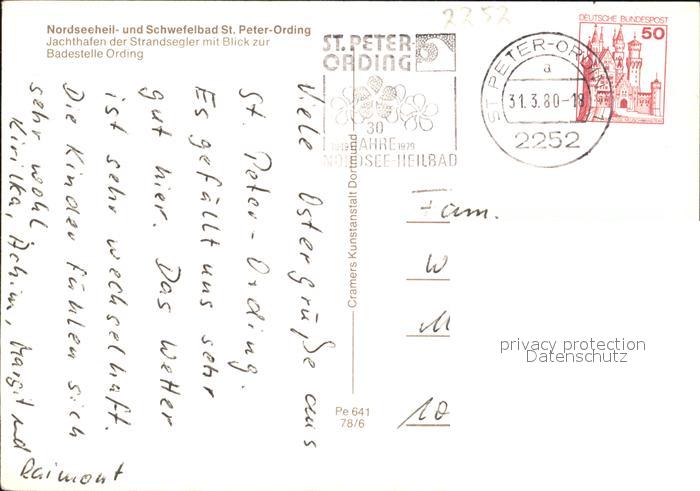 Nordseeheil- und Schwefelbad St. Peter-Ording
Jachthafen der Strandsegler mit Blick zur
Badestelle Ording
2252
ST. PETER-
ORDING
30
1949 JAHRE 1979
NORDSEE-HEILBAD
ST PETER-ORDING 1
a
31.3.80-18
2252
DEUTSCHE BUNDESPOST
50
Viele Ostergrüße aus
St. Peter-Ording.
Es gefällt uns sehr
gut hier. Das Wetter
ist sehr wechselhaft.
Die Kinder fühlen sich
sehr wohl.
Kirilka, Achim, Margit und
Raimont
Cramers Kunstanstalt Dortmund
Pe 641
78/6
Fam.
W
M
10
privacy protection
Datenschutz